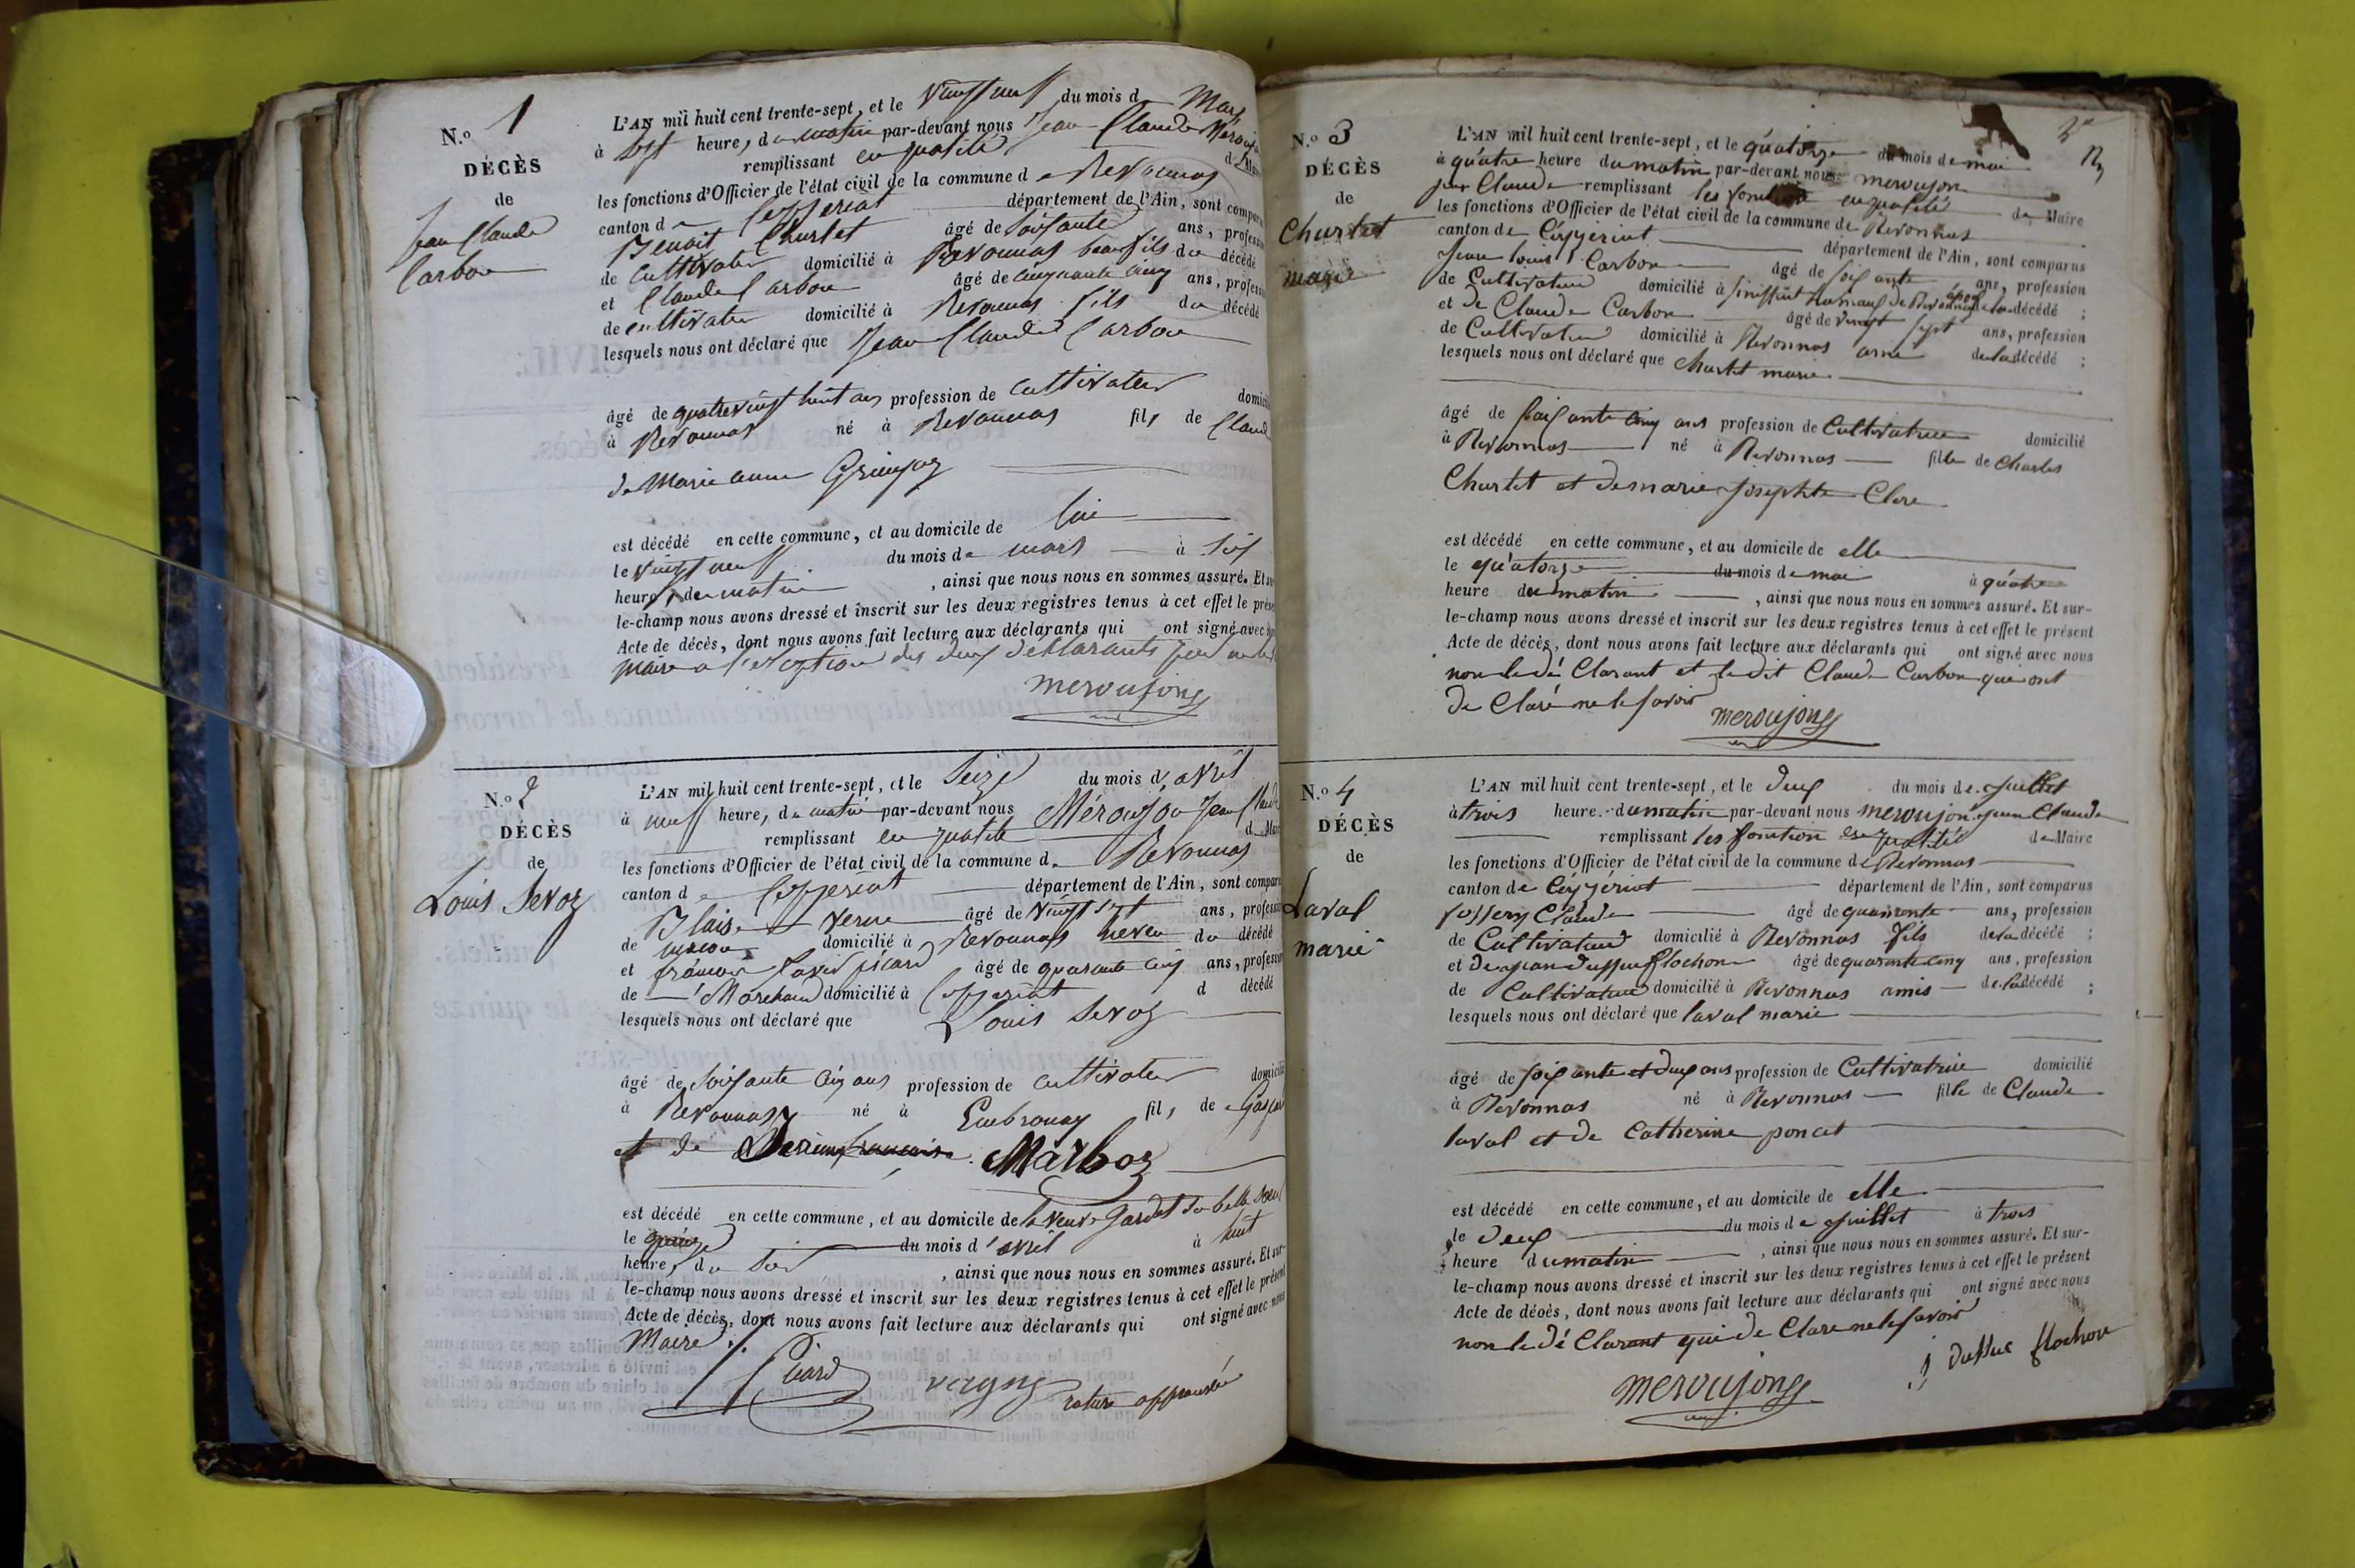 N.o 1
DÉCÈS
de
Jean Claude
Carbon
L'AN mil huit cent trente-sept, et le Vingt neuf du mois de Mars
à Sept heure, du matin par-devant nous Jean Claude
remplissant en qualité de
les fonctions d'Officier de l'état civil de la commune de Revonnas
canton de Ceyzeriat département de l'Ain, sont
Benoit Churlet âgé de Soixante ans,
de Cultivateur domicilié à Revonnas beaufils du décédé
et Claude Carbon âgé de Cinquante cinq ans,
de cultivateur domicilié à Revonnas fils du décédé
lesquels nous ont déclaré que Jean Claude Carbon
âgé de quatrevingt huit ans profession de Cultivateur
à Revonnas né à Revonnas fils de
de Marie anne
est décédé en cette commune, et au domicile de lui
le vingt neuf du mois de mars à Six
heure, du matin , ainsi que nous nous en sommes assuré. Et
le-champ nous avons dressé et inscrit sur les deux registres tenus à cet effet le
Acte de décès, dont nous avons fait lecture aux déclarants qui ont signé avec
maire a l'exception des deux déclarants pour ne le
merousong
N.o 2
DÉCÈS
de
Louis Sevoz
L'AN mil huit cent trente-sept, et le Seize du mois d'avril
à neuf heure, du matin par-devant nous Mérouson Jean
remplissant en qualité
les fonctions d'Officier de l'état civil de la commune de Revonnas
canton de Ceyzeriat département de l'Ain, sont
Blaise Verne âgé de Vingt sept ans,
de maçon domicilié à Revonnas neveu du décédé
et françois picard âgé de quarante cinq ans,
de Marchand domicilié à Ceyzeriat d décédé
lesquels nous ont déclaré que Louis Sevoz
âgé de Soixante Cinq ans profession de cultivateur
à Revonnas né à fils de
et de Marboz
est décédé en cette commune, et au domicile de la Veuve Gardet Sa belle Soeur
le quinze du mois d'avril à huit
heure, du Soir , ainsi que nous nous en sommes assuré. Et sur-
le-champ nous avons dressé et inscrit sur les deux registres tenus à cet effet le présent
Acte de décès, dont nous avons fait lecture aux déclarants qui ont signé avec nous
Maire
Picard
rature approuvée
N.o 3
DÉCÈS
de
Churlet
marie
L'AN mil huit cent trente-sept, et le quatorze du mois de mai
à quatre heure du matin par-devant nous merouson
jean Claude remplissant les fonction en qualité de Maire
les fonctions d'Officier de l'état civil de la commune de Revonnas
canton de Ceyzeriat département de l'Ain, sont comparus
Jean louis Carbon âgé de soixante ans, profession
de Cultivateur domicilié à hameau de Revonnas de la décédé ;
et de Claude Carbon âgé de vingt sept ans, profession
de Cultivateur domicilié à Revonnas ami de la décédé ;
lesquels nous ont déclaré que Churlet marie
âgé de soixante cinq ans profession de Cultivatrice domicilié
à Revonnas né à Revonnas fille de Charles
Churlet et de marie josephte Clere
est décédé en cette commune, et au domicile de elle
le quatorze du mois de mai à quatre
heure du matin , ainsi que nous nous en sommes assuré. Et sur-
le-champ nous avons dressé et inscrit sur les deux registres tenus à cet effet le présent
Acte de décès, dont nous avons fait lecture aux déclarants qui ont signé avec nous
non le dé Clarant et le dit Claude Carbon qui ont
de Claré ne le savoir
merousong
N.o 4
DÉCÈS
de
Laval
marie
L'AN mil huit cent trente-sept, et le deux du mois de juillet
à trois heure du matin par-devant nous merouson jean Claude
remplissant les fonction en qualité de Maire
les fonctions d'Officier de l'état civil de la commune de Revonnas
canton de Ceyzériat département de l'Ain, sont comparus
Claude âgé de quarante ans, profession
de Cultivateur domicilié à Revonnas fils de la décédé ;
et de jean flochon âgé de quarante cinq ans, profession
de Cultivateur domicilié à Revonnas amis de la décédé ;
lesquels nous ont déclaré que laval marie
âgé de soixante et deux ans profession de Cultivatrice domicilié
à Revonnas né à Revonnas fille de Claude
laval et de Catherine poncet
est décédé en cette commune, et au domicile de elle
le deux du mois de juillet à trois
heure du matin , ainsi que nous nous en sommes assuré. Et sur-
le-champ nous avons dressé et inscrit sur les deux registres tenus à cet effet le présent
Acte de décès, dont nous avons fait lecture aux déclarants qui ont signé avec nous
non le dé Clarant qui de Clare ne le savoir
j Dussuc flochon
merousong